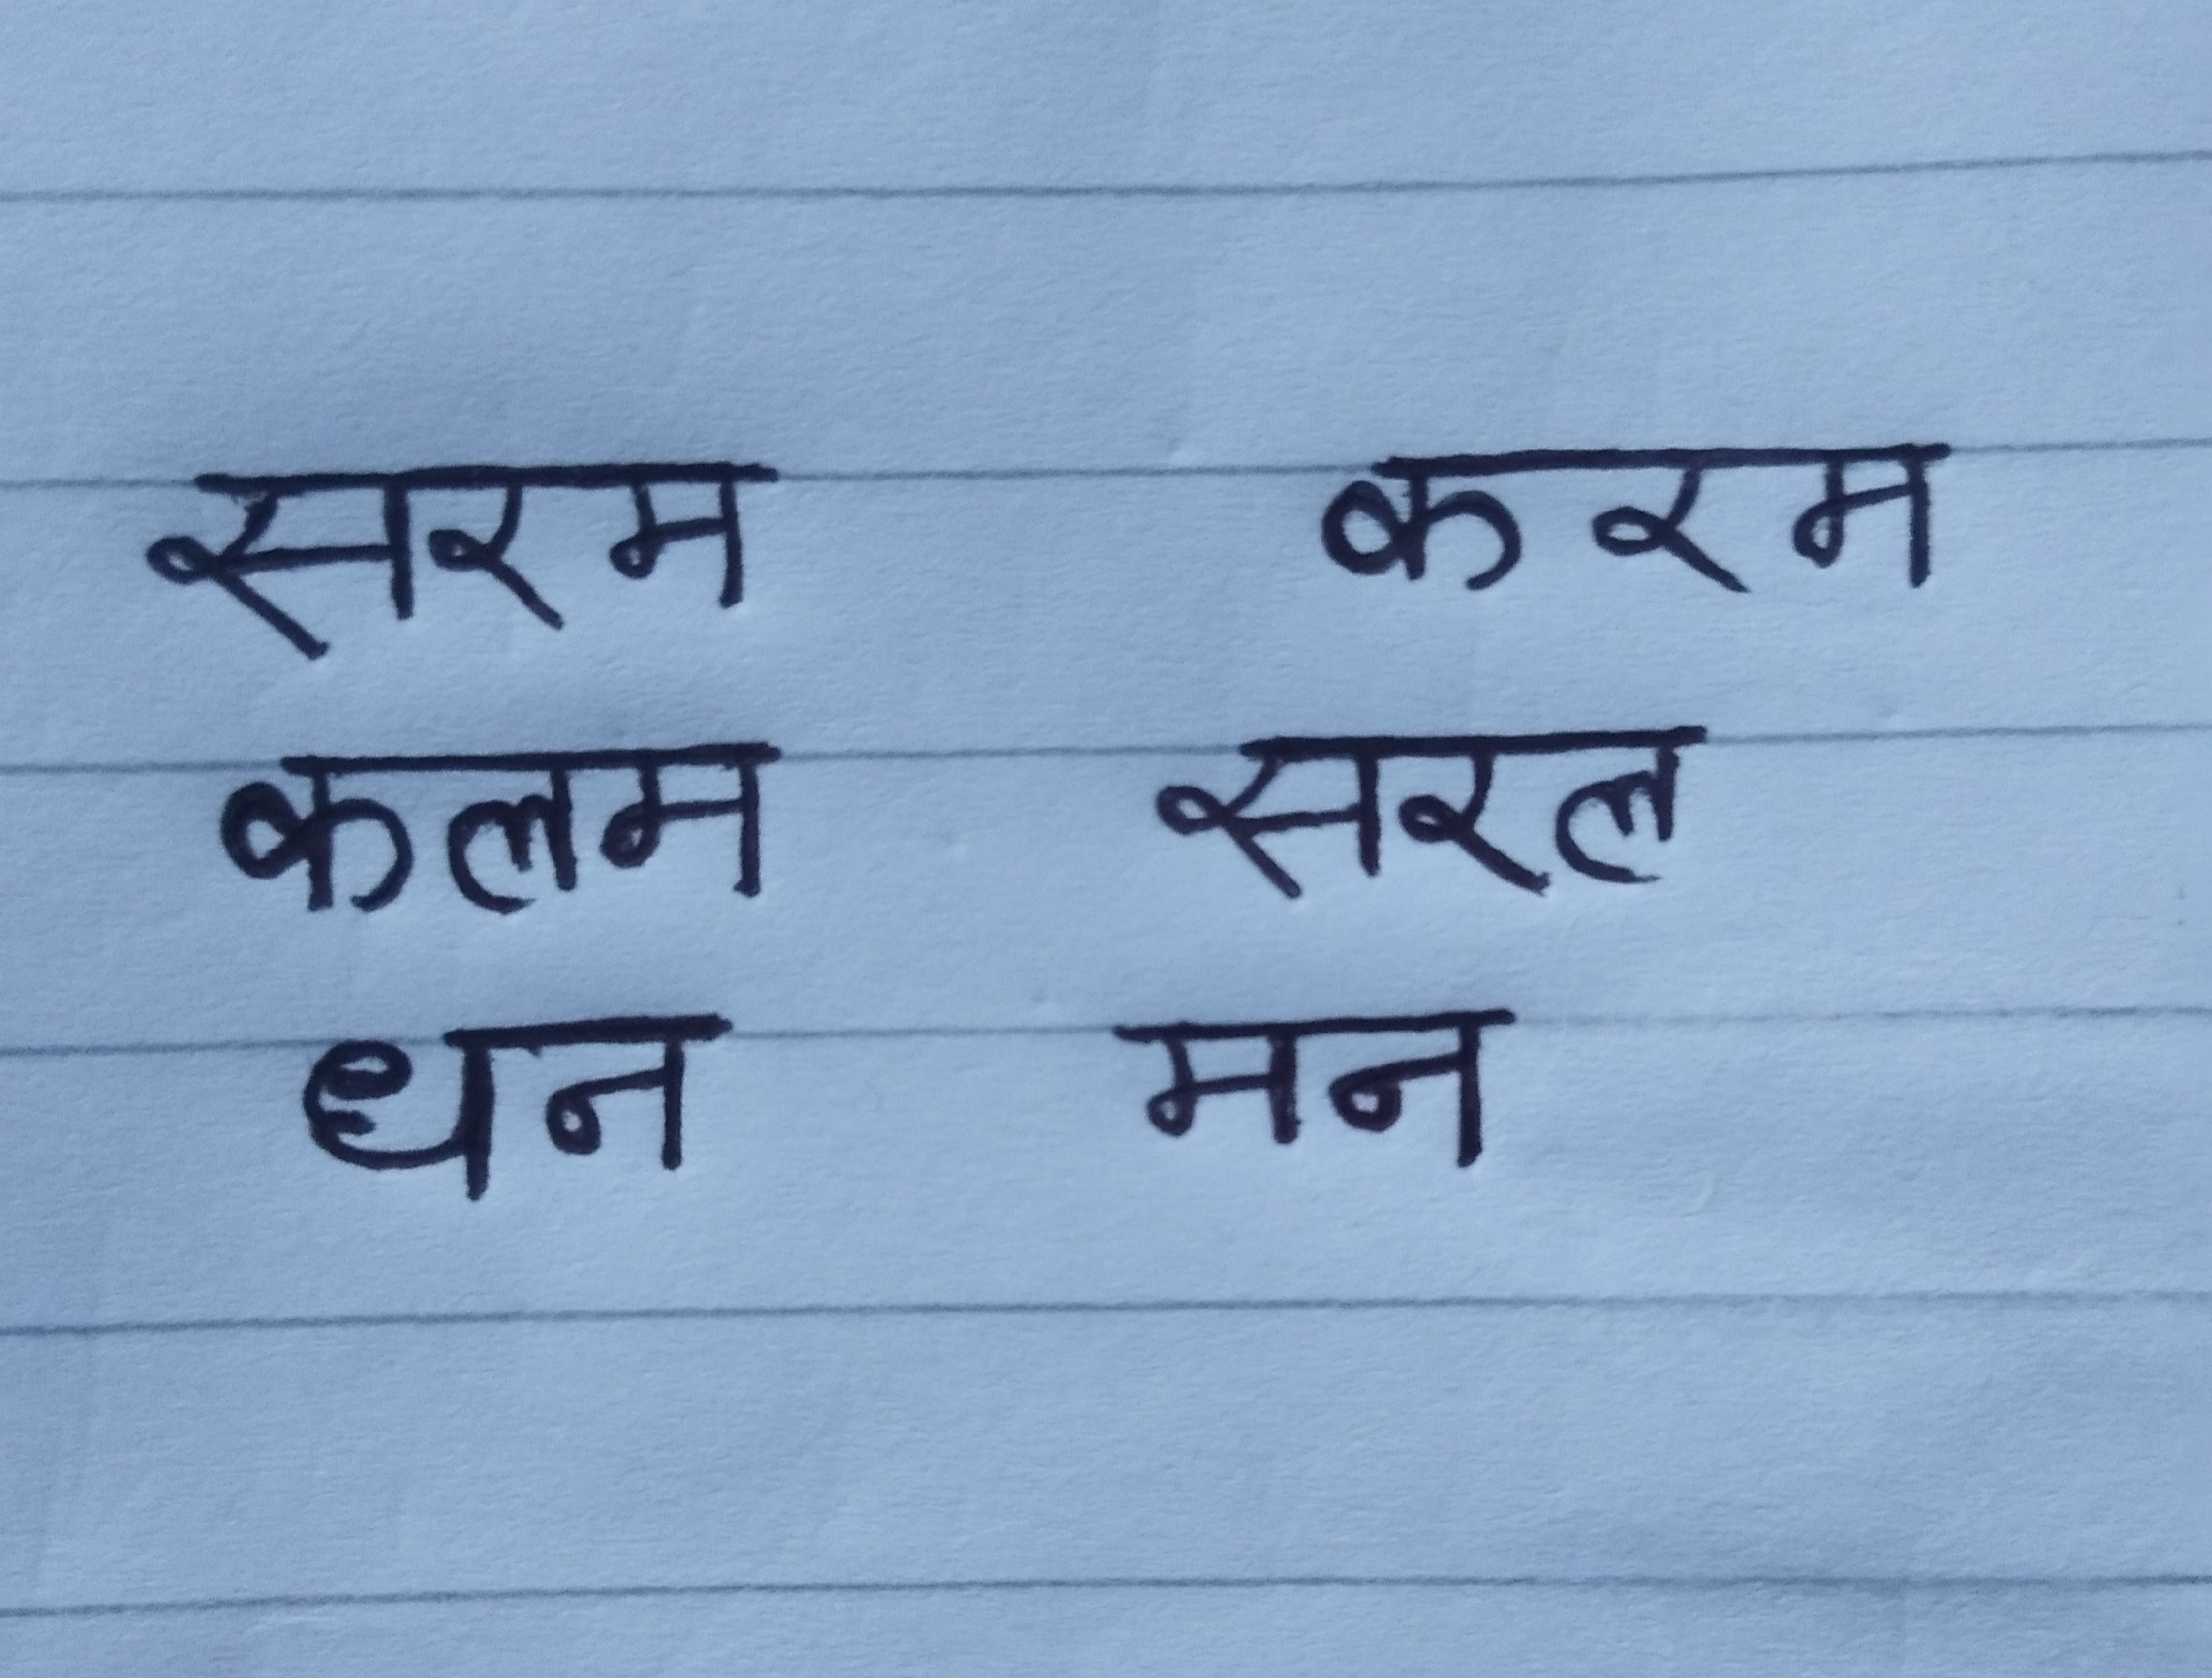 सरम करम
कलम सरल
धन मन